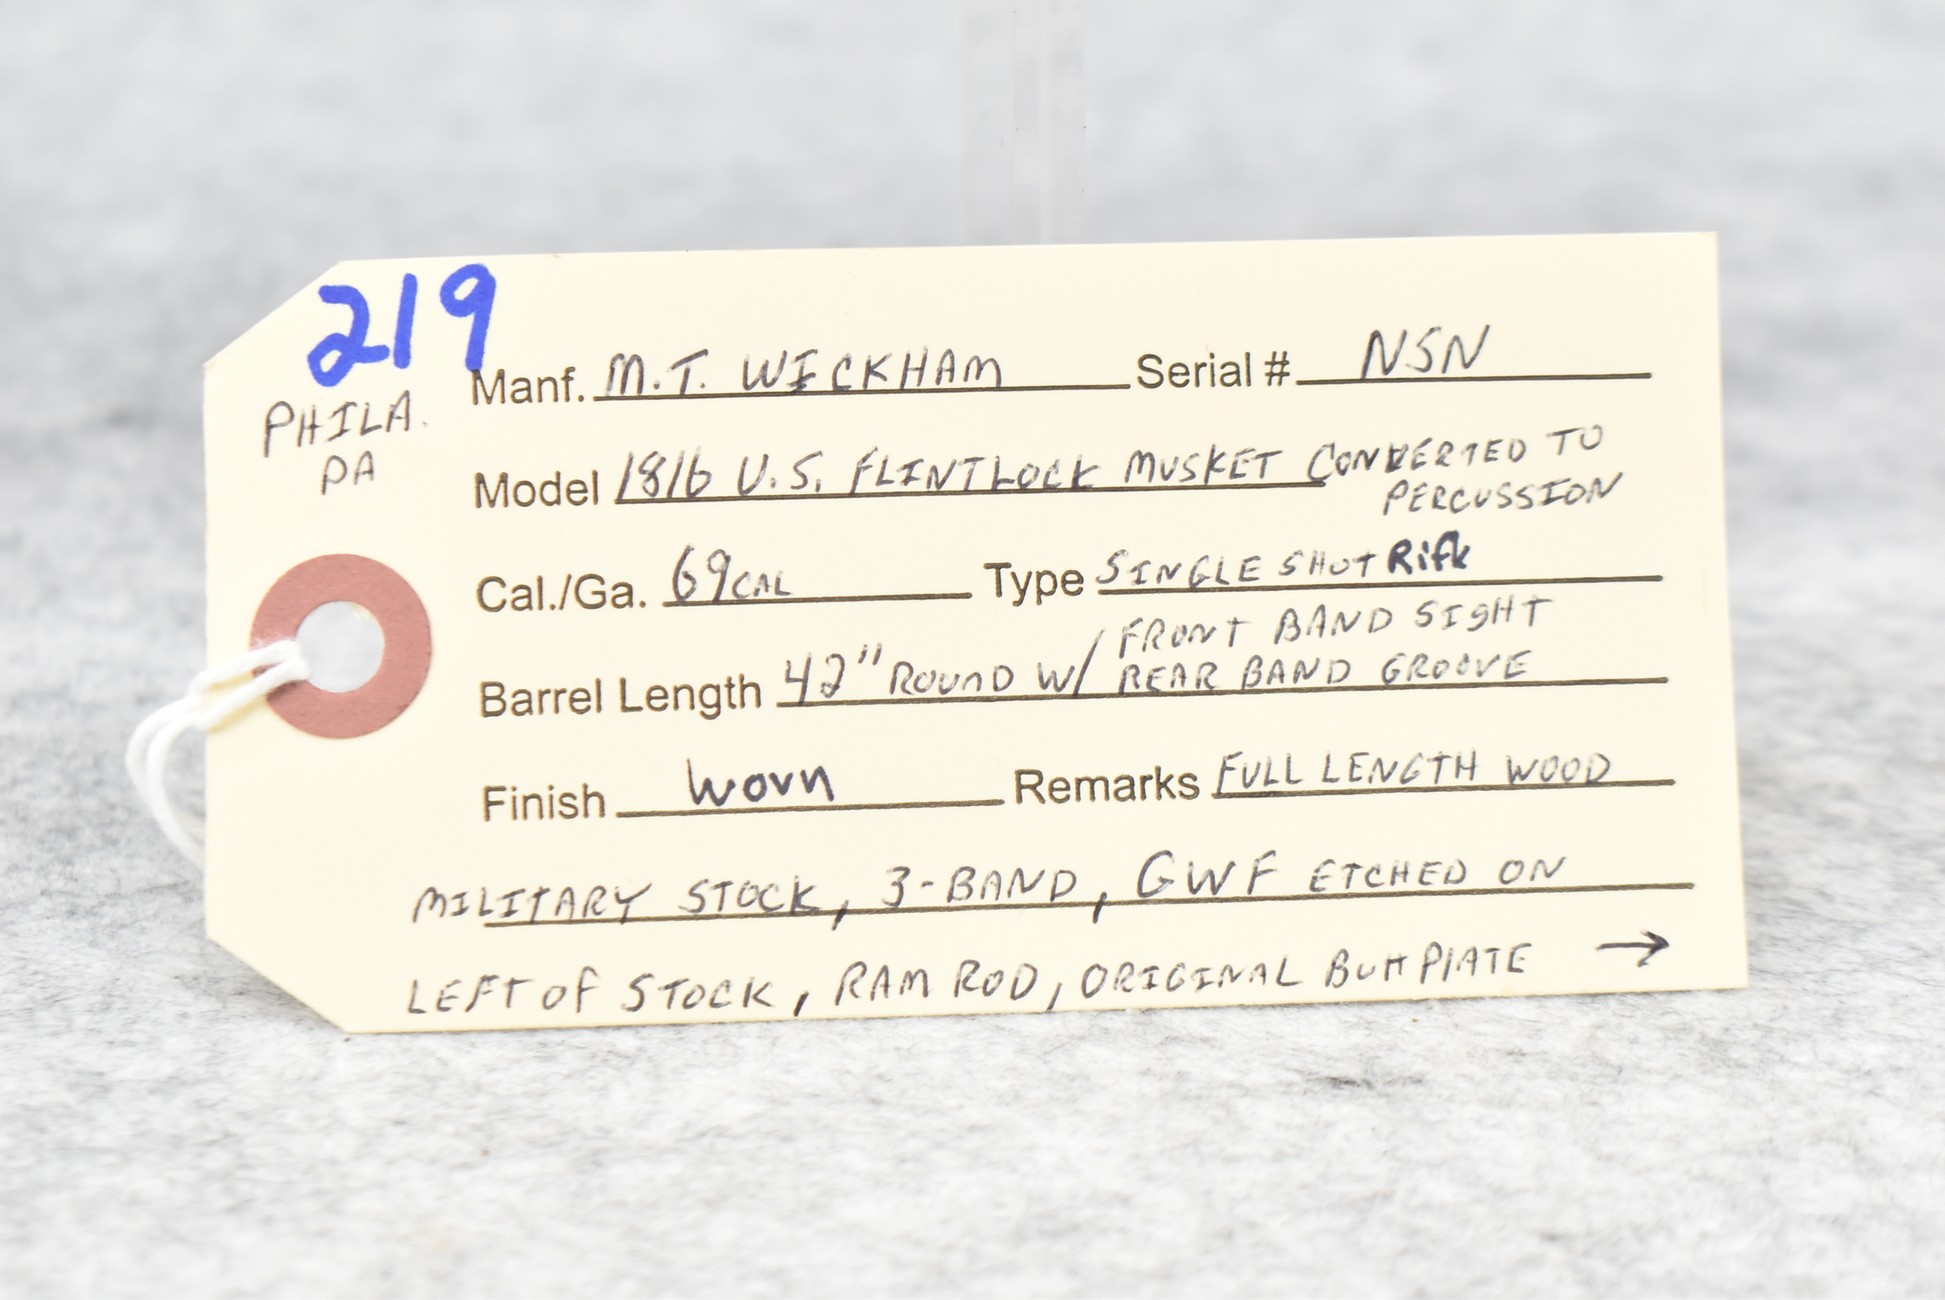 219
PHILA.
PA
Manf. M.T. WICKHAM Serial # NSN
Model 1816 U.S. FLINTLOCK MUSKET CONVERTED TO
PERCUSSION
Cal./Ga. 69 CAL Type SINGLE SHOT Rifle
FRONT BAND SIGHT
Barrel Length 42" ROUND W/ REAR BAND GROOVE
Finish Worn Remarks FULL LENGTH WOOD
MILITARY STOCK, 3-BAND, GWF ETCHED ON
LEFT OF STOCK, RAM ROD, ORIGINAL BUTTPLATE →